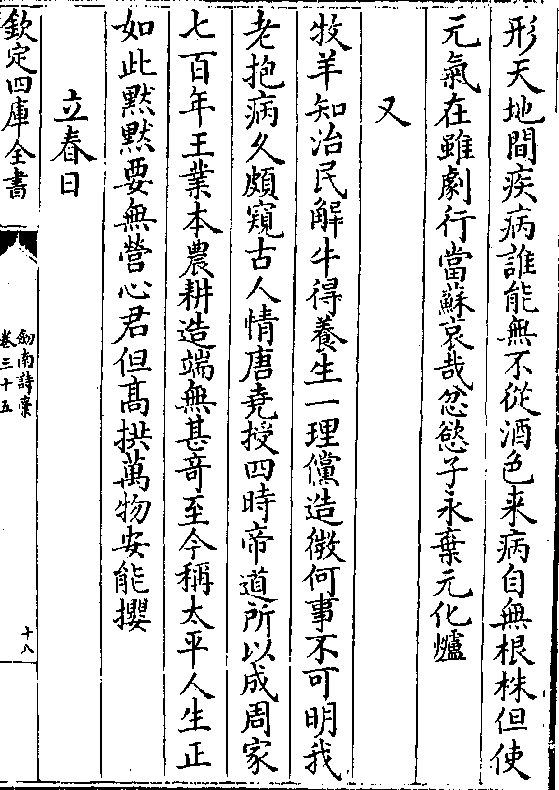 形天地間疾病誰能無不從酒色来病自無根株但使
元氣在雖劇行當蘇哀哉忿慾子永棄元化爐
又
牧羊知治民解牛得養生一理儻造微何事不可明我
老抱病久頗窺古人情唐堯授四時帝道所以成周家
七百年王業本農耕造端無甚竒至今稱太平人生正
如此黙黙要無營心君但髙拱萬物安能攖
立春日
欽定四庫全書
劒南詩稾
卷三十五
十八